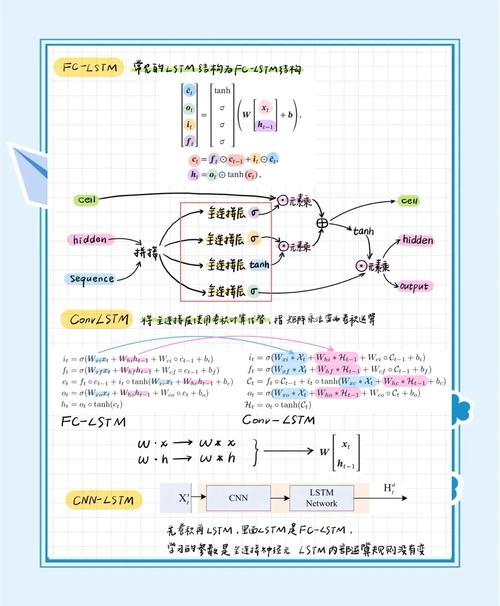 FC-LSTM 常见的LSTM结构为FC-LSTM结构
[c̃ₜ oₜ iₜ fₜ] = [tanh σ σ σ] (W [xₜ hₜ₋₁] + b),
cₜ = fₜ ⊙ cₜ₋₁ + iₜ ⊙ c̃ₜ,
hₜ = oₜ ⊙ tanh(cₜ).
cell 全连接层 σ ⊙元素乘 cell
hidden 拼接 全连接层 σ ⊙元素乘 ⊕ tanh hidden
全连接层 tanh
sequence 全连接层 σ ⊙元素乘 output
ConvLSTM 将全连接层使用卷积计算代替,指矩阵乘法变为卷积运算
iₜ = σ(Wₓᵢxₜ + Wₕᵢhₜ₋₁ + W_ci ∘ cₜ₋₁ + bᵢ)
fₜ = σ(W_xf xₜ + W_hf hₜ₋₁ + W_cf ∘ cₜ₋₁ + b_f)
cₜ = fₜ ∘ cₜ₋₁ + iₜ ∘ tanh(W_xc xₜ + W_hc hₜ₋₁ + b_c)
oₜ = σ(W_xo xₜ + W_ho hₜ₋₁ + W_co ∘ cₜ + b_o)
hₜ = oₜ ∘ tanh(cₜ)
iₜ = σ(W_xi * 𝒳ₜ + W_hi * ℋₜ₋₁ + W_ci ∘ 𝒞ₜ₋₁ + bᵢ)
fₜ = σ(W_xf * 𝒳ₜ + W_hf * ℋₜ₋₁ + W_cf ∘ 𝒞ₜ₋₁ + b_f)
𝒞ₜ = fₜ ∘ 𝒞ₜ₋₁ + iₜ ∘ tanh(W_xc * 𝒳ₜ + W_hc * ℋₜ₋₁ + b_c)
oₜ = σ(W_xo * 𝒳ₜ + W_ho * ℋₜ₋₁ + W_co ∘ 𝒞ₜ + b_o)
ℋₜ = oₜ ∘ tanh(𝒞ₜ)
FC-LSTM Conv-LSTM
W · x → W * x
W · h → W * h
→ W [xₜ hₜ₋₁]
CNN-LSTM CNN LSTM Network
先卷积再LSTM,里面LSTM是FC-LSTM,
学习的参数是全连接神经元 LSTM内部运算规则没有变